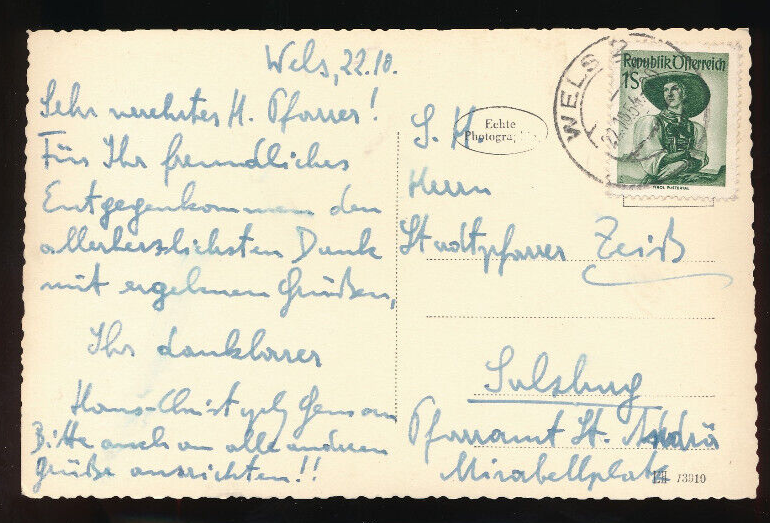 Wels, 22.10.
Sehr verehrter H. Pfarrer!
Für Ihr freundliches
Entgegenkommen den
allerherzlichsten Dank
mit ergebenen Grüßen,
Ihr dankbarer
Hans-Christoph
Bitte auch an alle anderen
Grüße ausrichten!!
WELS 2
22.10.54
Republik Österreich
1S
TIROL PUSTERTAL
Echte
Photographie
S. H.
Herrn
Stadtpfarrer Zeiß
Salzburg
Pfarramt St. Andrä
Mirabellplatz
73910